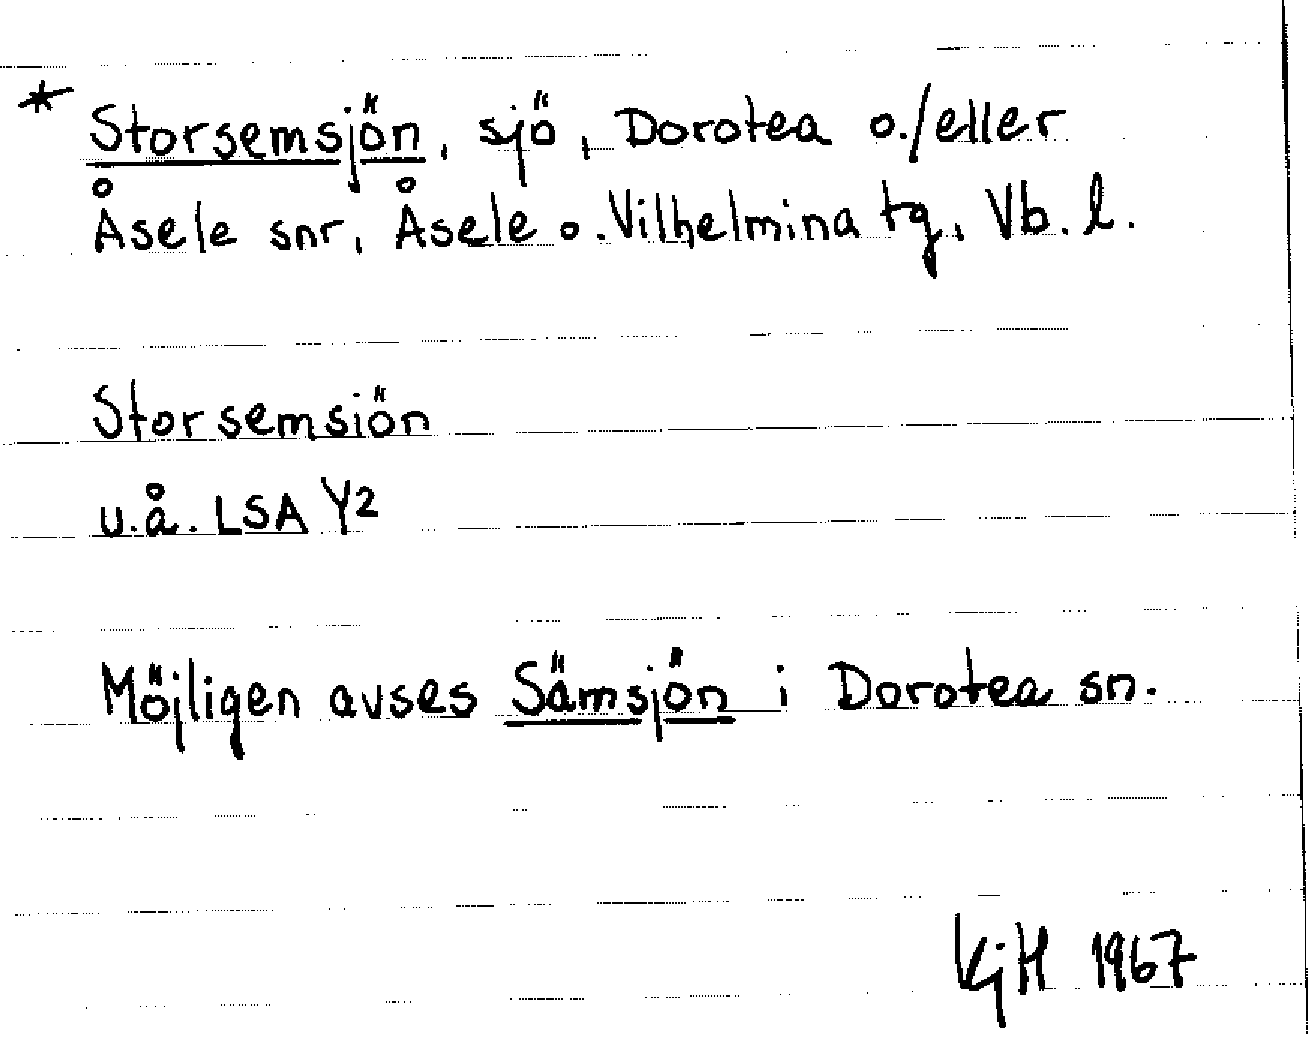 * Storsemsjön, sjö, Dorotea o./eller
Åsele snr, Åsele o. Vilhelmina tg, Vb. l.
Storsemsiön
u.å. LSA Y2
Möjligen avses Sämsjön i Dorotea sn.
KjH 1967